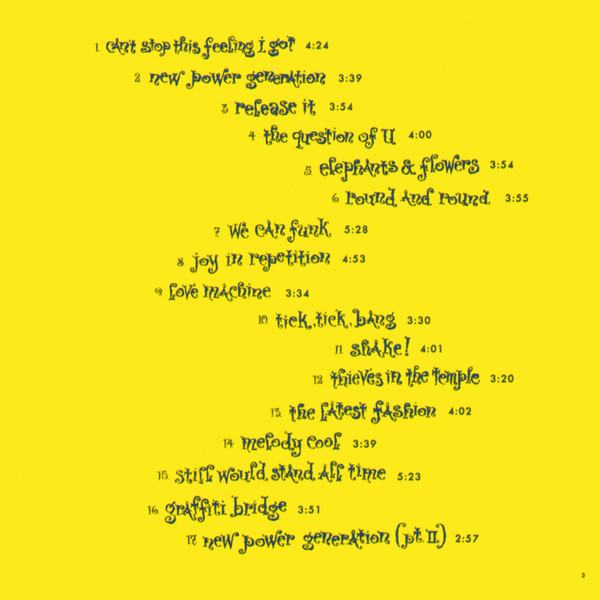 1 can't stop this feeling i got! 4:24
2 new power generation 3:39
3 release it 3:54
4 the question of U 4:00
5 elephants & flowers 3:54
6 round and round 3:55
7 we can funk 5:28
8 joy in repetition 4:53
9 love machine 3:34
10 tick, tick, bang 3:30
11 shake! 4:01
12 thieves in the temple 3:20
13 the latest fashion 4:02
14 melody cool 3:39
15 still would stand all time 5:23
16 graffiti bridge 3:51
17 new power generation (pt. II) 2:57
3